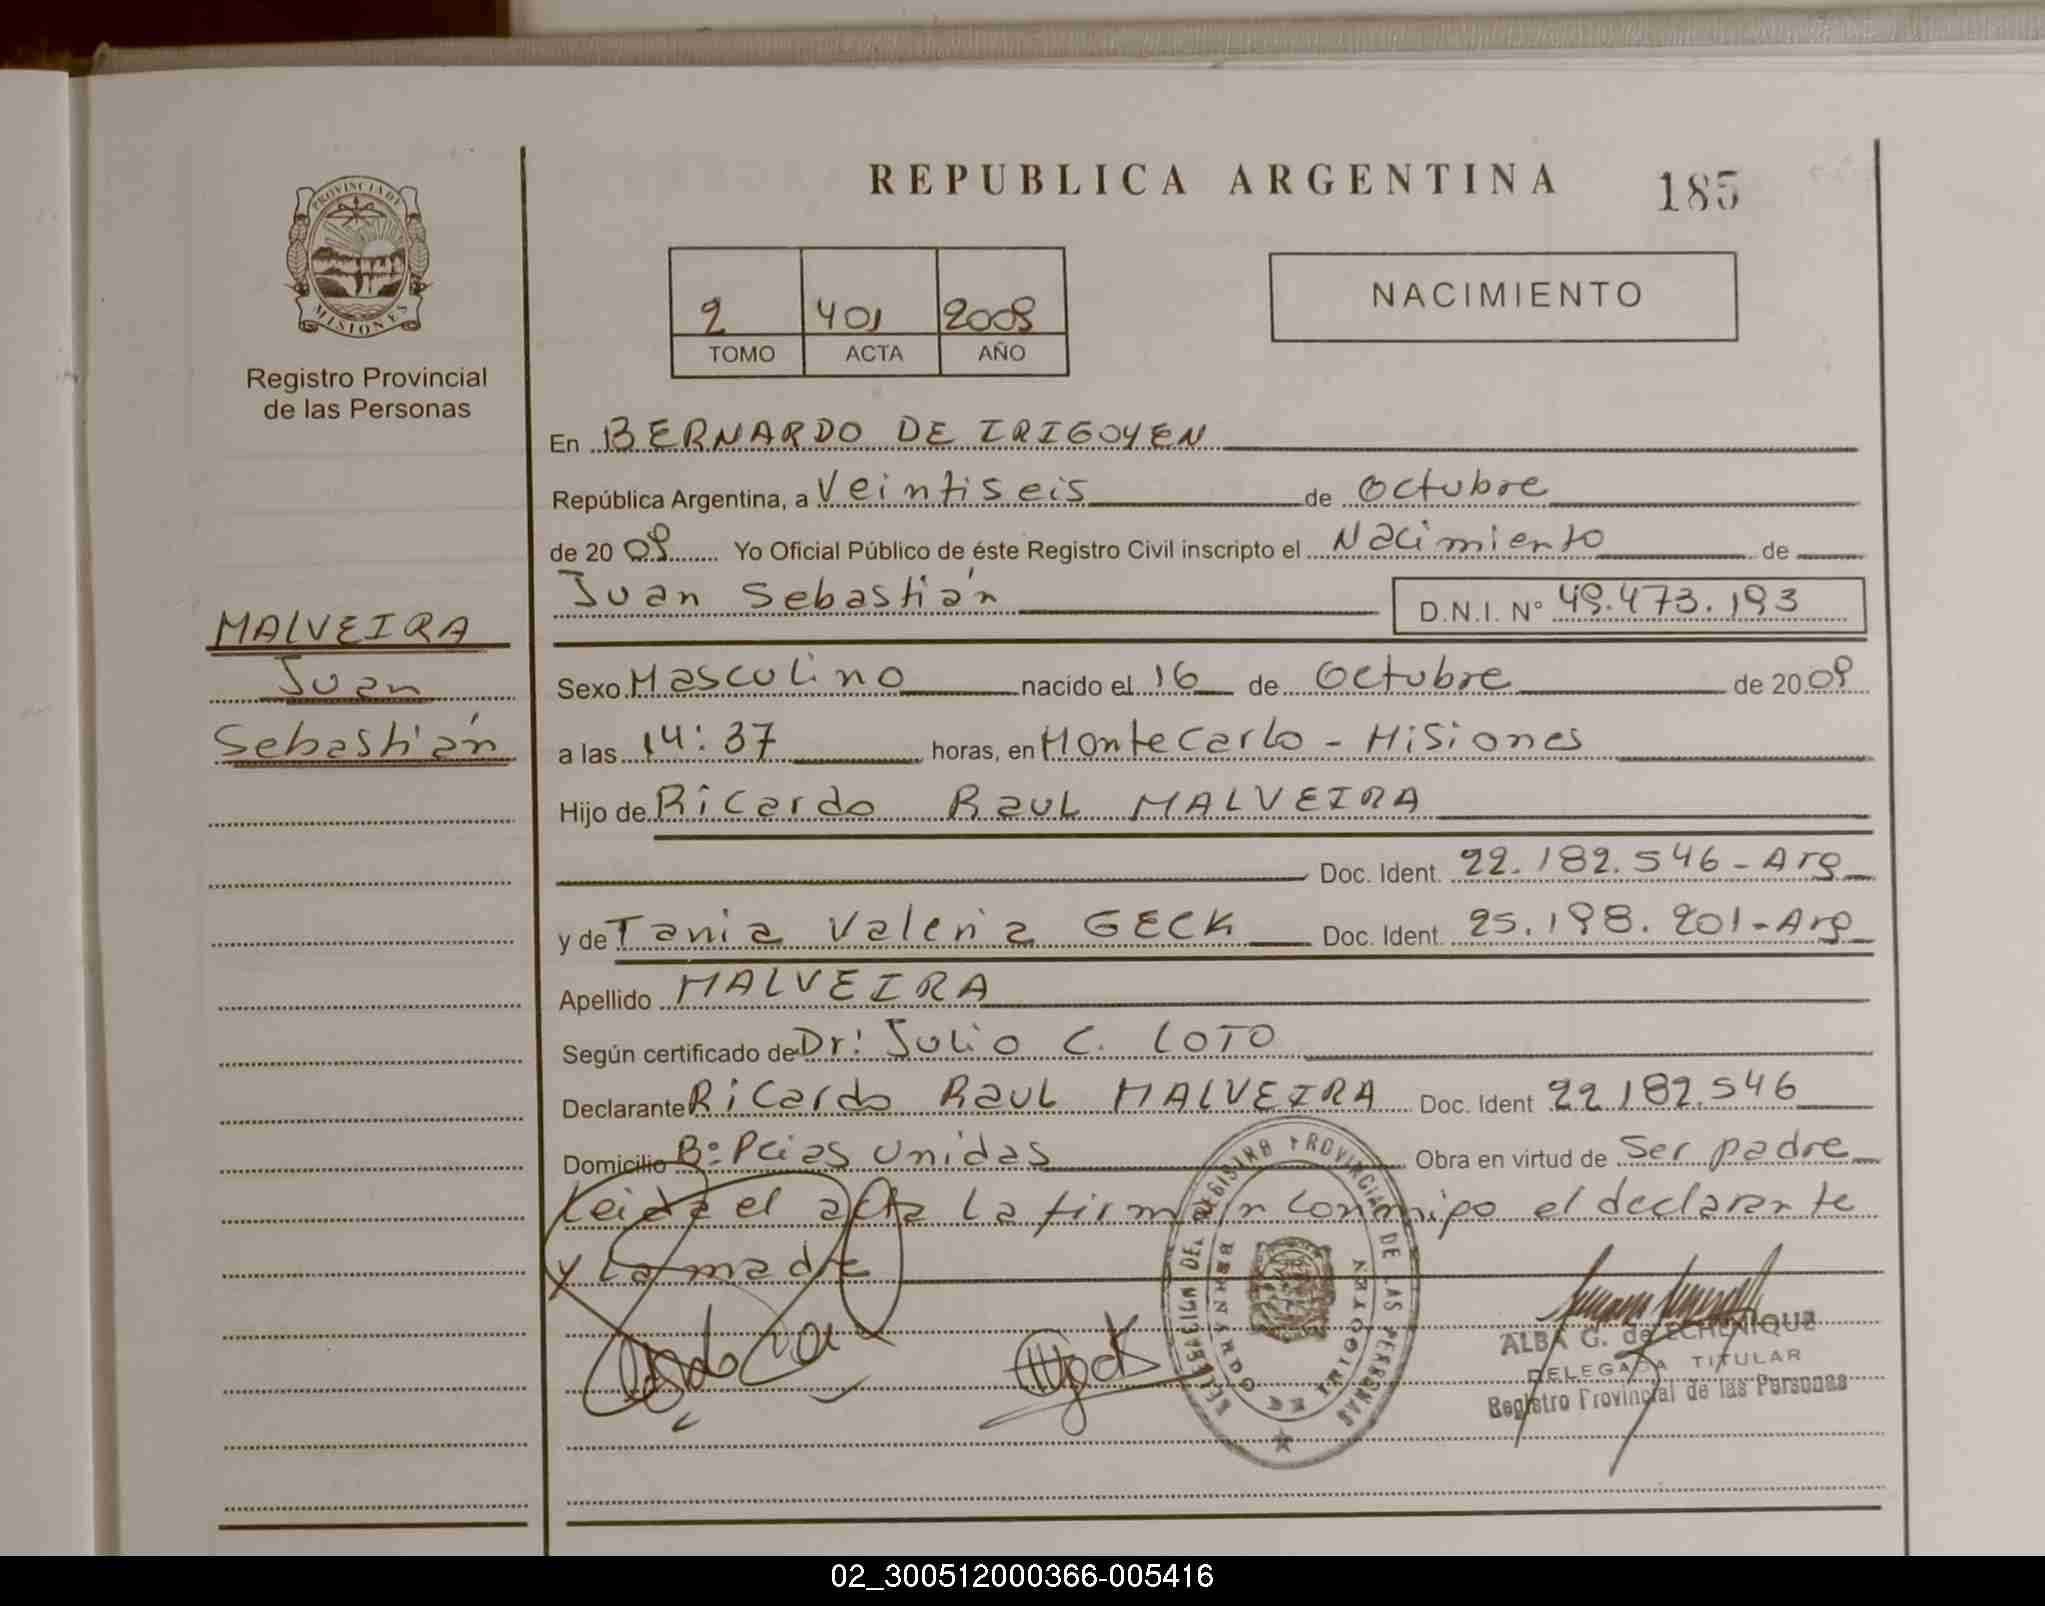 REPUBLICA ARGENTINA 185
PROVINCIA DE
MISIONES
Registro Provincial
de las Personas
2 401 2009
TOMO ACTA AÑO
NACIMIENTO
En BERNARDO DE IRIGOYEN
República Argentina, a Veintiseis de Octubre
de 20 09 Yo Oficial Público de éste Registro Civil inscripto el Nacimiento de
Juan Sebastián D.N.I. N° 49.473.193
MALVEIRA
Juan
Sebastián
Sexo Masculino nacido el 16 de Octubre de 20 09
a las 14:37 horas, en Montecarlo - Misiones
Hijo de Ricardo Raul MALVEIRA
Doc. Ident. 22.182.546 - Arg
y de Tania Valeria GECK Doc. Ident. 25.198.201 - Arg
Apellido MALVEIRA
Según certificado de Dr: Julio C. LOTO
Declarante Ricardo Raul MALVEIRA Doc. Ident 22.182.546
Domicilio B° Pcias Unidas Obra en virtud de Ser padre
Leida el acta La firman conmigo el declarante
y La madre
DELEGACION DEL REGISTRO PROVINCIAL DE LAS PERSONAS
BERNARDO DE IRIGOYEN
ALBA G. de ECHENIQUE
DELEGADA TITULAR
Registro Provincial de las Personas
02_300512000366-005416